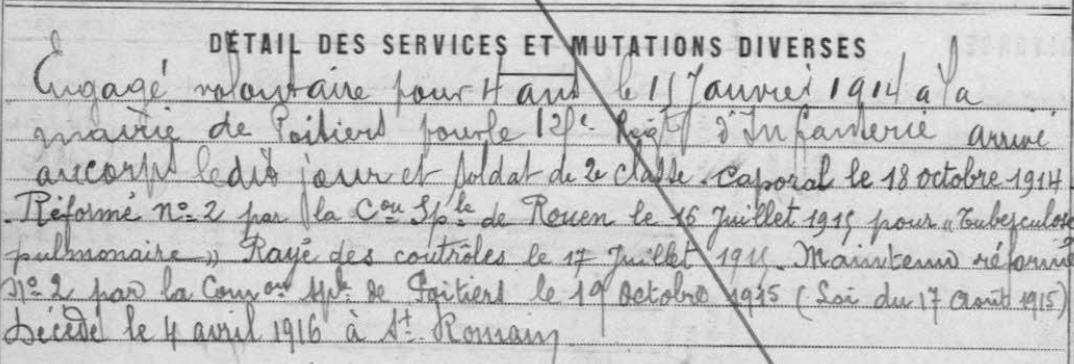 DÉTAIL DES SERVICES ET MUTATIONS DIVERSES
Engagé volontaire pour 4 ans le 15 Janvier 1914 à la
mairie de Poitiers pour le 125e Régt d'Infanterie arrivé
au corps le dit jour et soldat de 2e classe. Caporal le 18 octobre 1914.
Réformé no 2 par la Con Sple de Rouen le 16 Juillet 1915 pour "Tuberculose
pulmonaire" Rayé des contrôles le 17 Juillet 1915. Maintenu réformé
No 2 par la Comon Sple de Poitiers le 19 Octobre 1915 (Loi du 17 Août 1915)
Décédé le 4 avril 1916 à St Romain